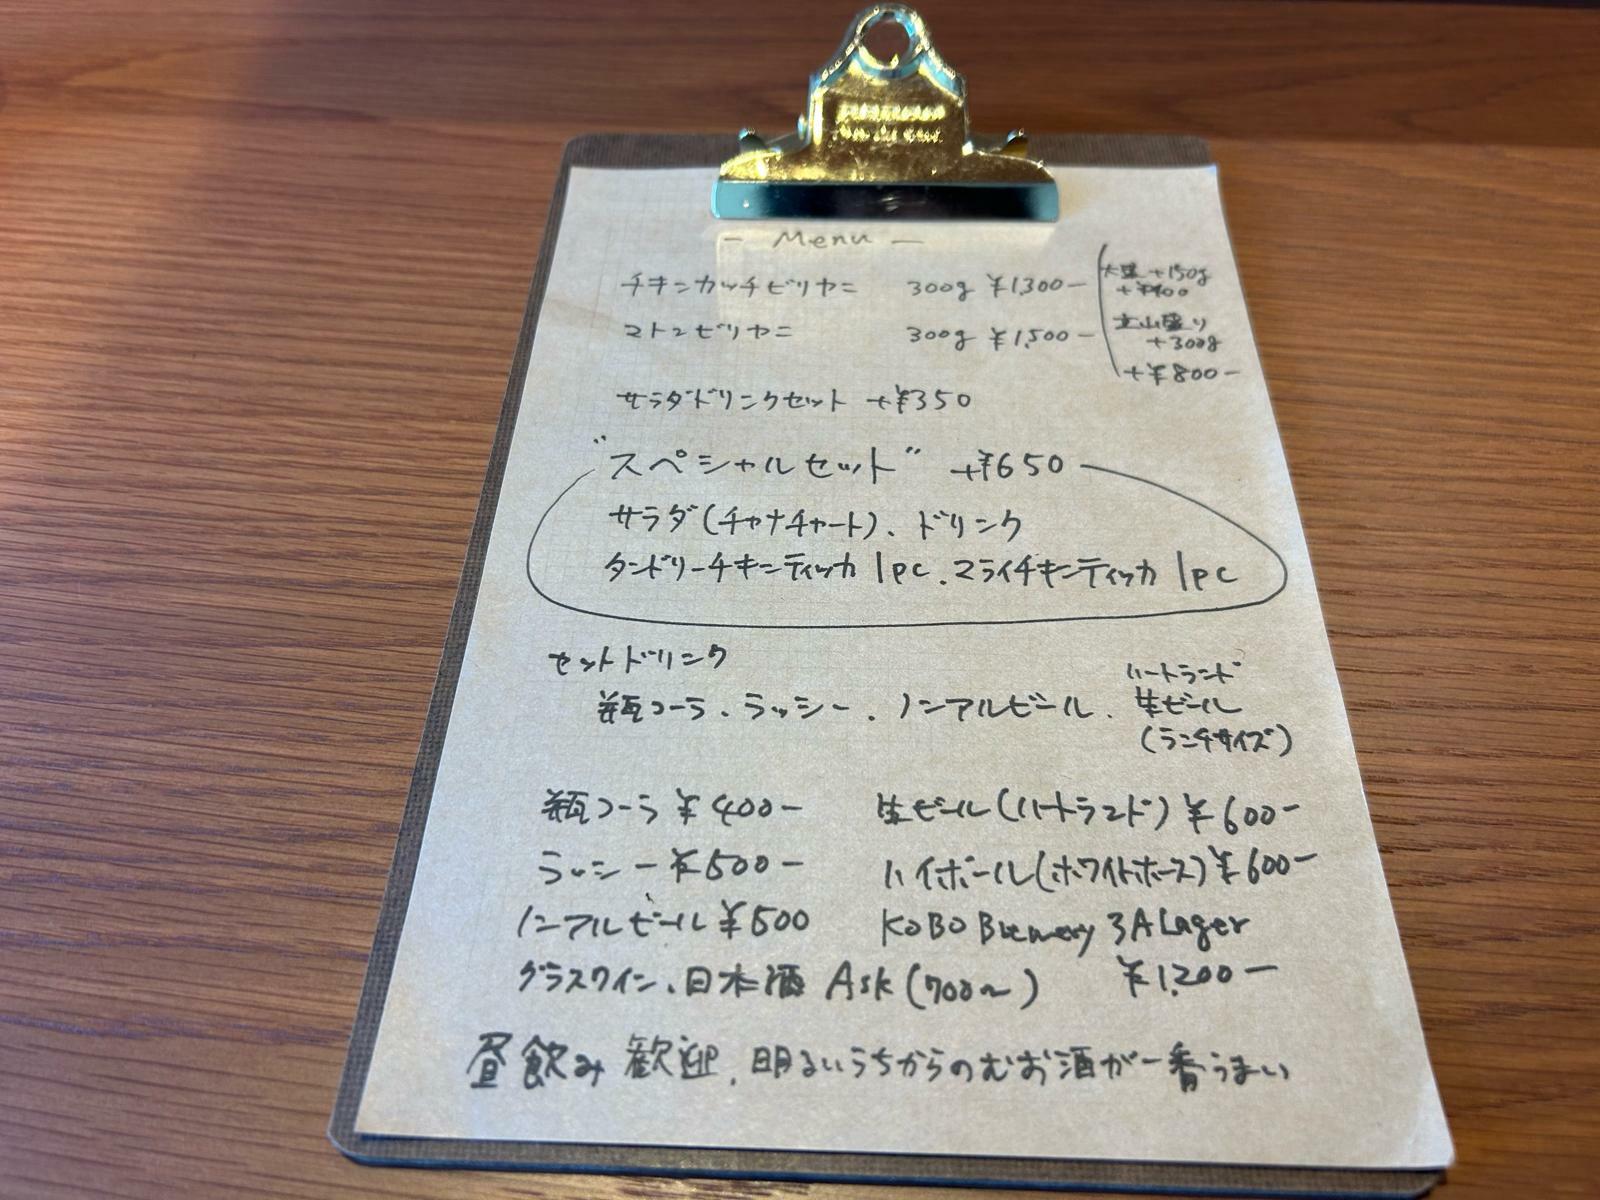 — Menu —
チキンカッチビリヤニ 300g ¥1,300-
大盛 +150g
+¥400
マトンビリヤニ 300g ¥1,500-
立山盛り
+300g
+¥800-
サラダドリンクセット +¥350
"スペシャルセット" +¥650
サラダ(チャナチャート)、ドリンク
タンドリーチキンティッカ 1pc、マライチキンティッカ 1pc
セットドリンク
瓶コーラ、ラッシー、ノンアルビール、
ハートランド
生ビール
(ランチサイズ)
瓶コーラ ¥400- 生ビール(ハートランド) ¥600-
ラッシー ¥500- ハイボール(ホワイトホース) ¥600-
ノンアルビール ¥500 KOBO Brewery 3A Lager
グラスワイン、日本酒 Ask (700~) ¥1,200-
昼飲み歓迎、明るいうちからのむお酒が一番うまい